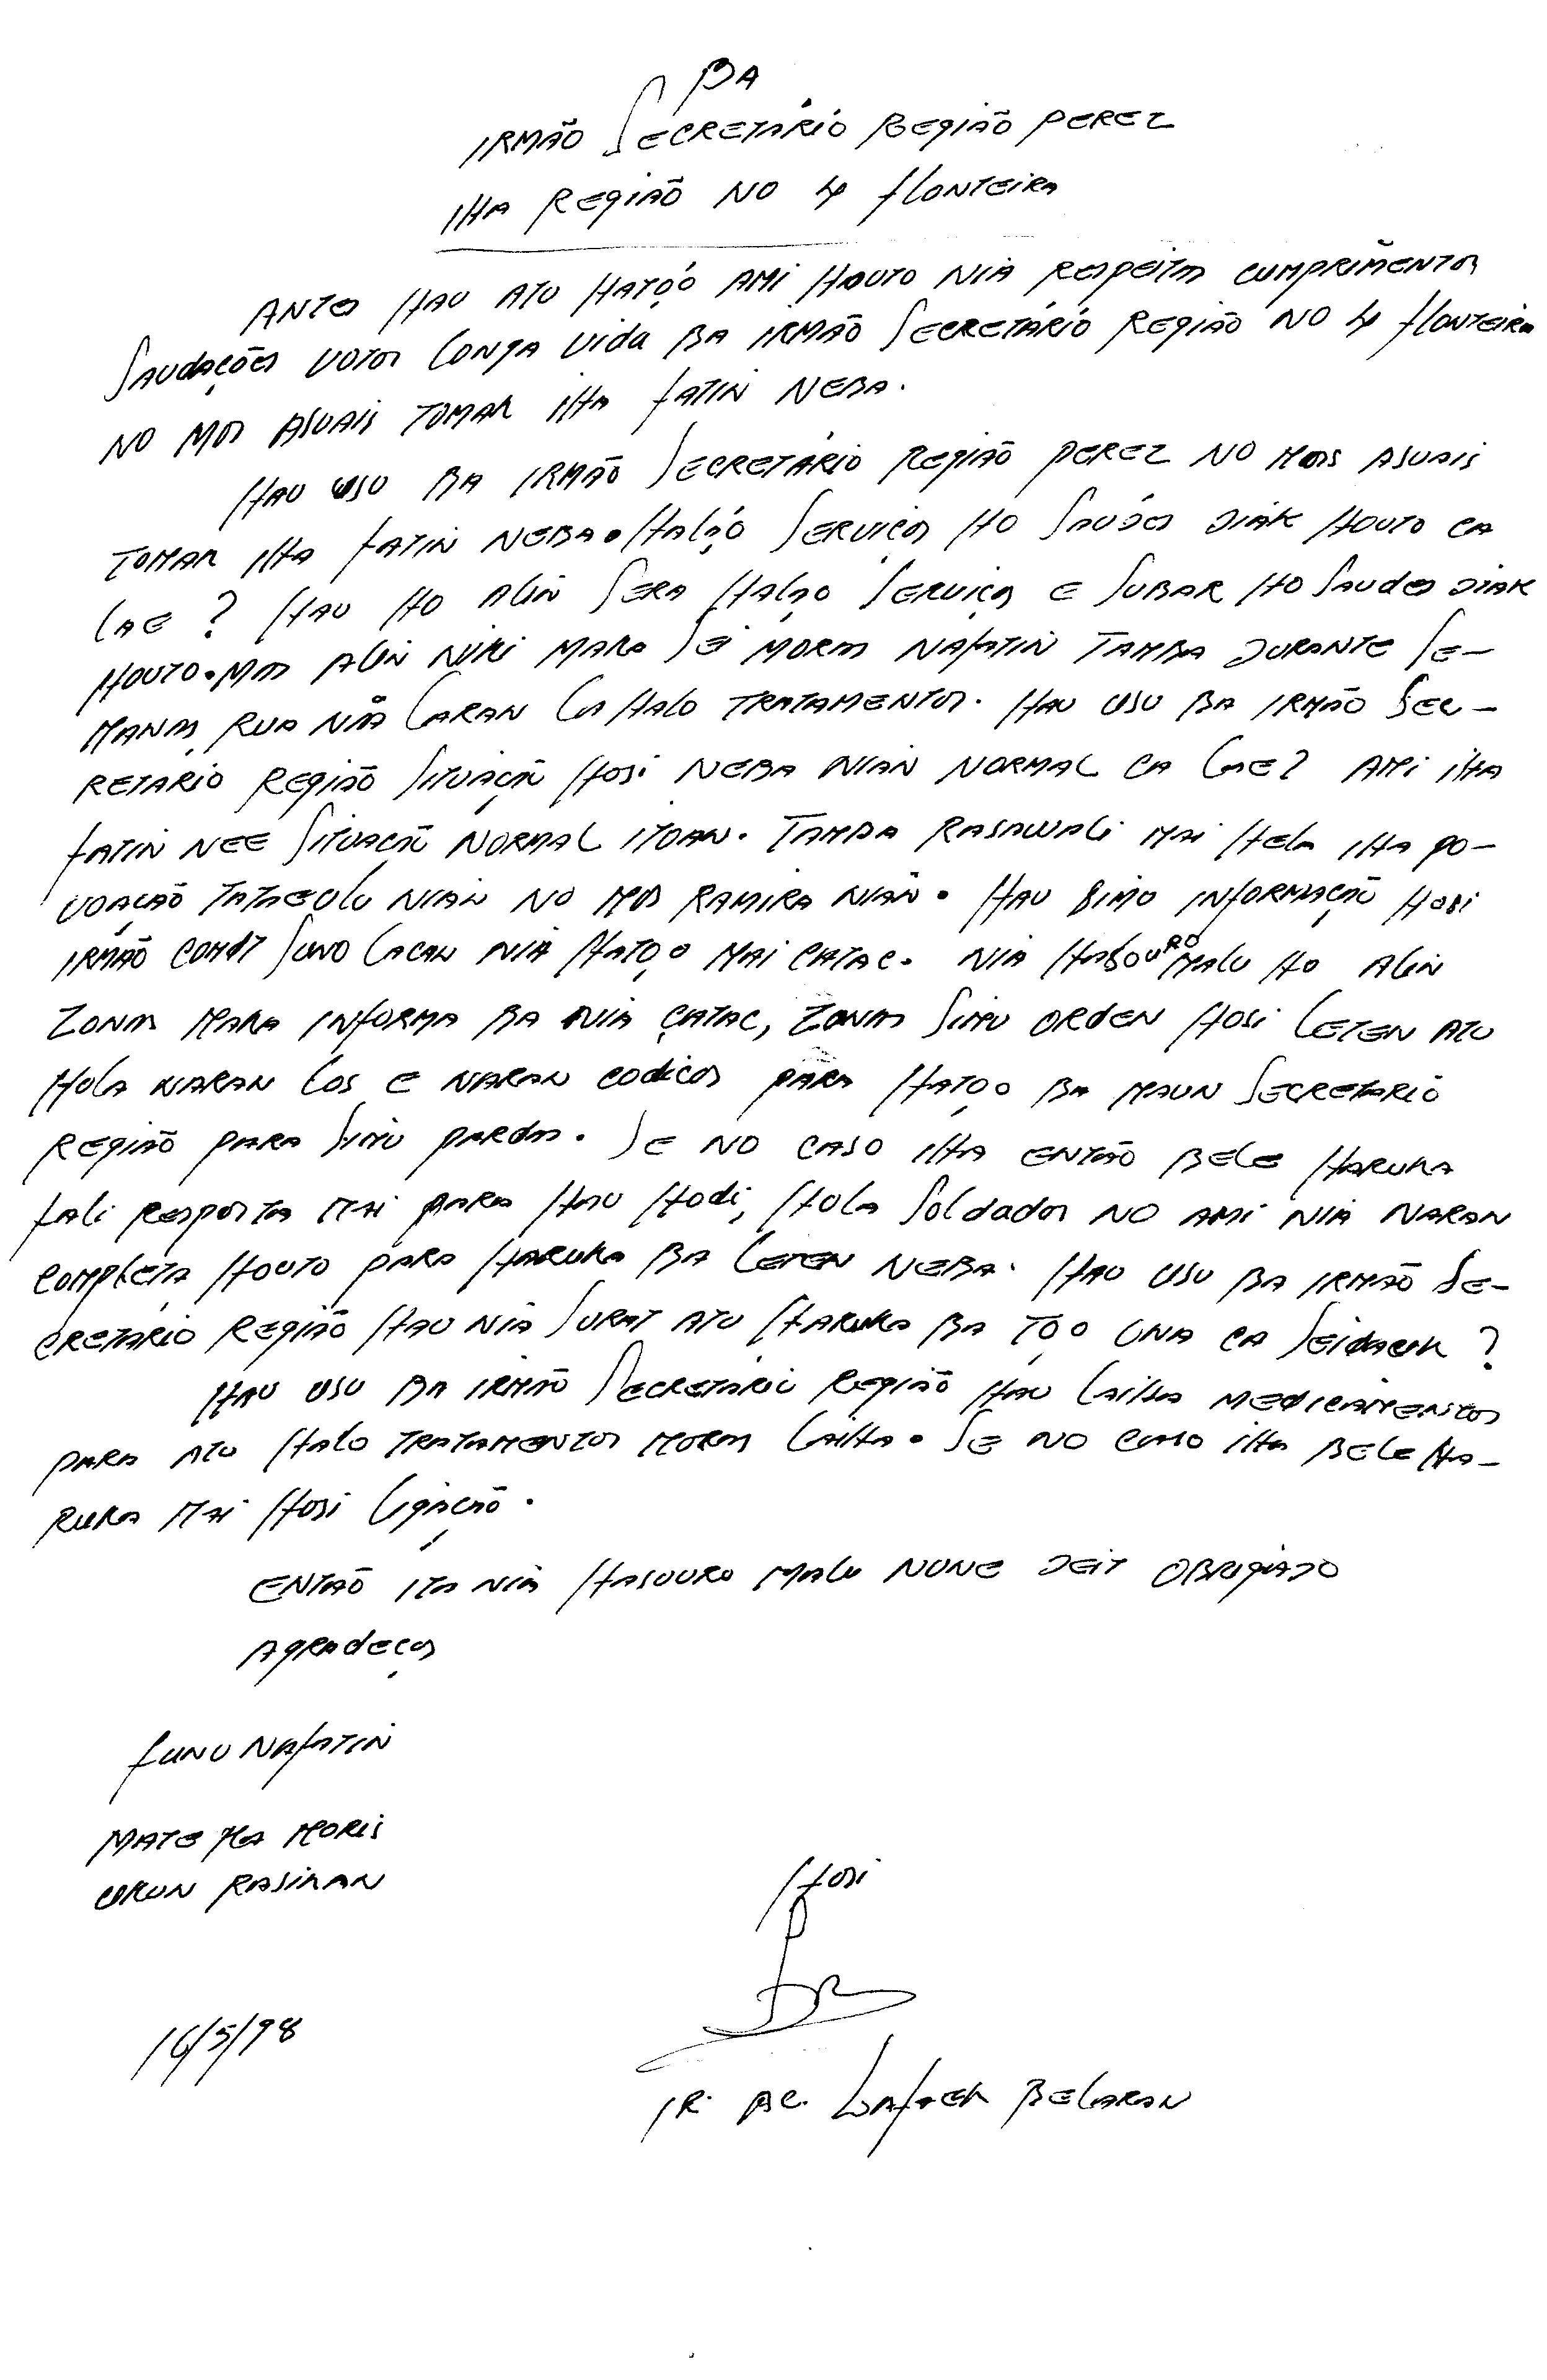 BA
IRMÃO SECRETÁRIO REGIÃO PEREZ
IHA REGIÃO NO 4 FLONTEIRA
ANTES HAU ATU HATO̧Ó AMI HOUTO NIA RESPEITOS CUMPRIMENTOS
SAUDAÇÕES VOTOS LONGA VIDA BA IRMÃO SECRETÁRIO REGIÃO NO 4 FLONTEIRA
NO MOS ASUAIS TOMAR IHA FATIN NEBA.
HAU USU BA IRMÃO SECRETÁRIO REGIÃO PEREZ NO MOS ASUAIS
TOMAR IHA FATIN NEBA. HALA̧O SERVIÇOS HO SAUDES DIAK HOUTO CA
LAE? HAU HO ALIN SERA HALA̧O SERVIÇOS E SUBAR HO SAUDES DIAK
HOUTO. MOS ALIN NIKI MARA SEI MORAS NAFATIN TAMBA DURANTE SE-
MANAS RUA NIA LARAN LA HALO TRATAMENTOS. HAU USU BA IRMÃO SEC-
RETÁRIO REGIÃO SITUAÇÃO HOSI NEBA NIAN NORMAL CA LAE? AMI IHA
FATIN NEE SITUAÇÃO NORMAL ITOAN. TAMBA RASAWALI MAI HELA IHA PO-
VOAÇÃO TATAEULU NIAN NO MOS RAMIRA NIAN. HAU SIMO INFORMAÇÃO HOSI
IRMÃO COMDT SUNO LACAN NIA HATO̧O MAI CATAC. NIA HASOURO MALU HO ALIN
ZONAS MARA INFORMA BA NIA CATAC, ZONAS SIMU ORDEN HOSI LETEN ATU
HOLA NARAN LOS E NARAN CODICOS PARA HATO̧O BA MAUN SECRETARIO
REGIÃO PARA SIMU PARDAS. SE NO CASO IHA ENTÃO BELE HARUKA
FALI RESPOSTA MAI PARA HAU HODI, HOLA SOLDADOS NO AMI NIA NARAN
COMPLETA HOUTO PARA HARUKA BA LETEN NEBA. HAU USU BA IRMÃO SE-
CRETÁRIO REGIÃO HAU NIA SURAT ATU HARUKA BA TO̧O ONA CA SEIDAUK?
HAU USU BA IRMÃO SECRETÁRIO REGIÃO HAU LAIHA MEDICAMENTOS
PARA ATU HALO TRATAMENTOS MORAS LAIHA. SE NO CASO IHA BELE HA-
RUKA MAI HOSI LIGAÇÃO.
ENTÃO ITA NIA HASOURO MALU NUNE DEIT OBRIGADO
AGRADEÇOS
FUNU NAFATIN
MATE KA MORIS
UKUN RASIKAN
HOSI
16/5/98
IR. BC. LAFAEK BELARAN